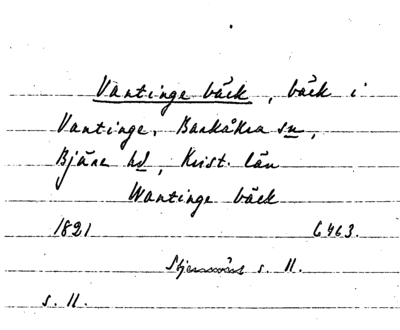 Vantinge bäck, bäck i
Vantinge, Barkåkra sn,
Bjäre hd, Krist. län
Wantinge bäck
1821 6463.
s. 11.
s. 11.